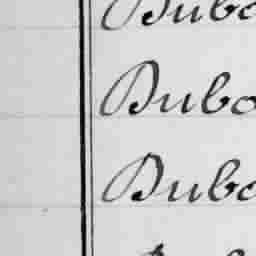 Dubo
Dubo
Dubo